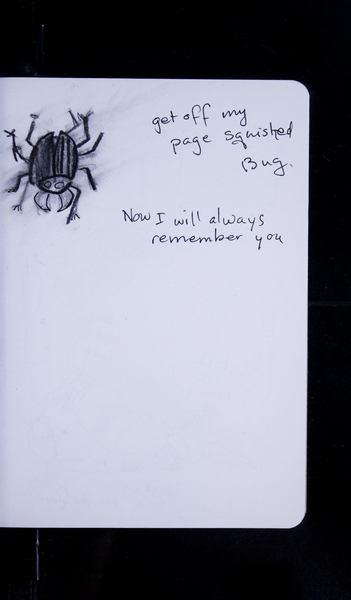 get off my
page squished
Bug.
Now I will always
remember you